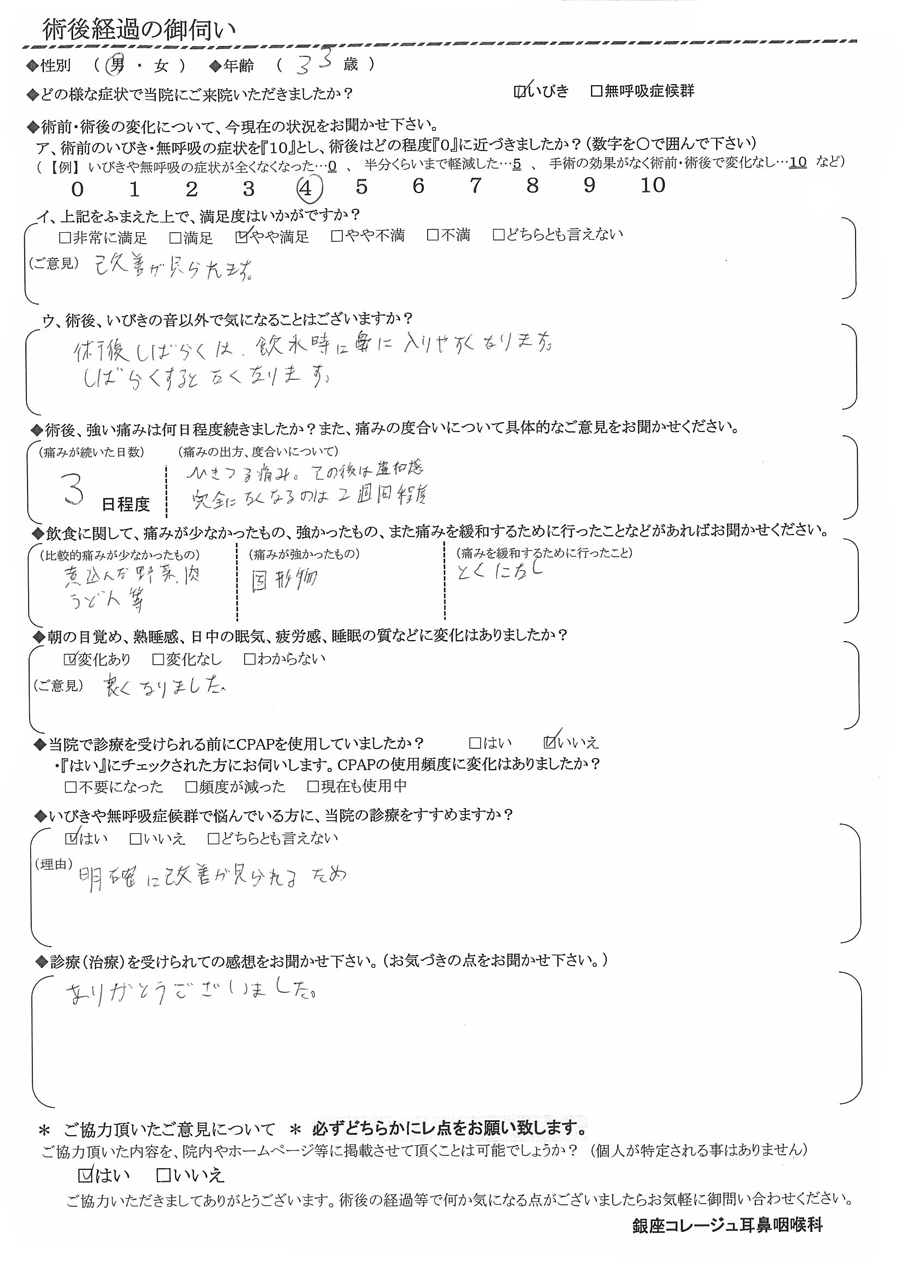 術後経過の御伺い
◆性別 （ 男 ・ 女 ） ◆年齢 （ 33 歳 ）
◆どの様な症状で当院にご来院いただきましたか？ ☑いびき □無呼吸症候群
◆術前・術後の変化について、今現在の状況をお聞かせ下さい。
ア、術前のいびき・無呼吸の症状を『10』とし、術後はどの程度『0』に近づきましたか？（数字を〇で囲んで下さい）
（【例】いびきや無呼吸の症状が全くなくなった…0 、 半分くらいまで軽減した…5 、 手術の効果がなく術前・術後で変化なし…10 など）
0 1 2 3 ④ 5 6 7 8 9 10
イ、上記をふまえた上で、満足度はいかがですか？
□非常に満足 □満足 ☑やや満足 □やや不満 □不満 □どちらとも言えない
（ご意見） 改善が見られます。
ウ、術後、いびきの音以外で気になることはございますか？
術後しばらくは、飲水時に鼻に入りやすくなります。
しばらくするとなくなります。
◆術後、強い痛みは何日程度続きましたか？また、痛みの度合いについて具体的なご意見をお聞かせください。
（痛みが続いた日数） （痛みの出方、度合いについて）
ひきつる痛み。その後は違和感
3 日程度 完全になくなるのは2週間程度
◆飲食に関して、痛みが少なかったもの、強かったもの、また痛みを緩和するために行ったことなどがあればお聞かせください。
（比較的痛みが少なかったもの） （痛みが強かったもの） （痛みを緩和するために行ったこと）
煮込んだ野菜、肉 固形物 とくになし
うどん等
◆朝の目覚め、熟睡感、日中の眠気、疲労感、睡眠の質などに変化はありましたか？
☑変化あり □変化なし □わからない
（ご意見） 良くなりました。
◆当院で診療を受けられる前にCPAPを使用していましたか？ □はい ☑いいえ
・『はい』にチェックされた方にお伺いします。CPAPの使用頻度に変化はありましたか？
□不要になった □頻度が減った □現在も使用中
◆いびきや無呼吸症候群で悩んでいる方に、当院の診療をすすめますか？
☑はい □いいえ □どちらとも言えない
（理由） 明確に改善が見られるため
◆診療（治療）を受けられての感想をお聞かせ下さい。（お気づきの点をお聞かせ下さい。）
ありがとうございました。
＊ ご協力頂いたご意見について ＊ 必ずどちらかにレ点をお願い致します。
ご協力頂いた内容を、院内やホームページ等に掲載させて頂くことは可能でしょうか？（個人が特定される事はありません）
☑はい □いいえ
ご協力いただきましてありがとうございます。術後の経過等で何か気になる点がございましたらお気軽に御問い合わせください。
銀座コレージュ耳鼻咽喉科